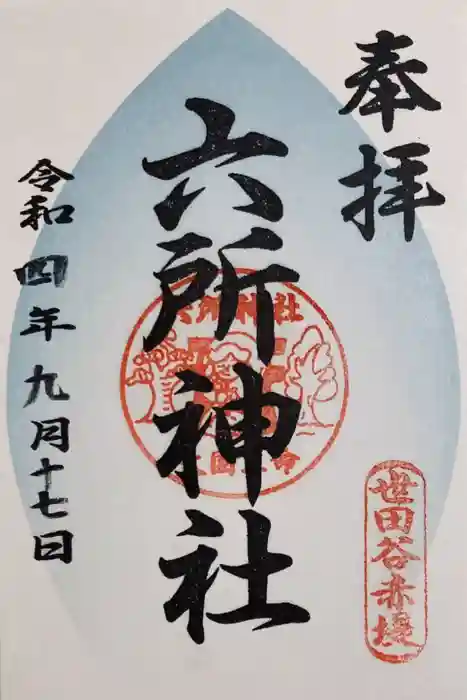 奉拝
六所神社
六所神社
世田谷赤堤
令和四年九月十七日